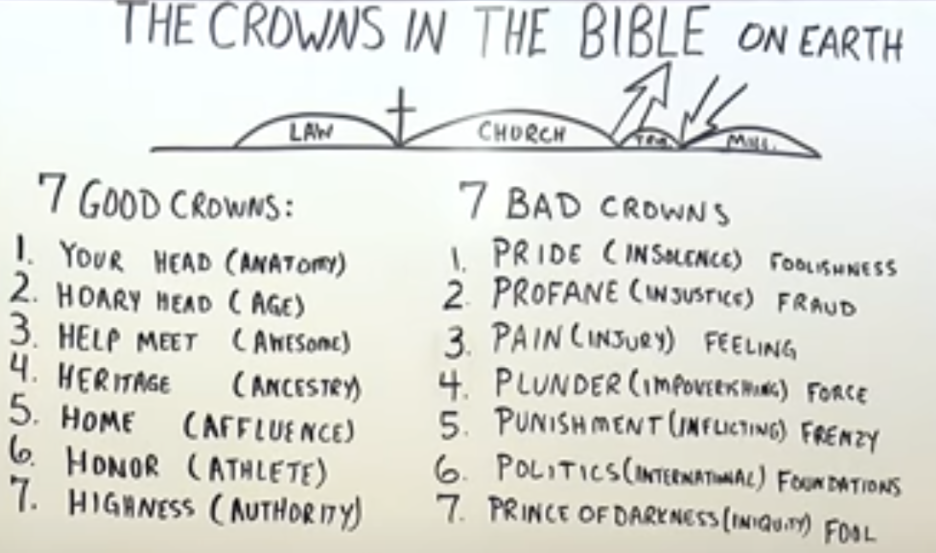 THE CROWNS IN THE BIBLE ON EARTH
LAW CHURCH TRIB. MILL.
7 GOOD CROWNS:
1. YOUR HEAD (ANATOMY)
2. HOARY HEAD (AGE)
3. HELP MEET (AWESOME)
4. HERITAGE (ANCESTRY)
5. HOME (AFFLUENCE)
6. HONOR (ATHLETE)
7. HIGHNESS (AUTHORITY)
7 BAD CROWNS
1. PRIDE (INSOLENCE) FOOLISHNESS
2. PROFANE (INJUSTICE) FRAUD
3. PAIN (INJURY) FEELING
4. PLUNDER (IMPOVERISHING) FORCE
5. PUNISHMENT (INFLICTING) FRENZY
6. POLITICS (INTERNATIONAL) FOUNDATIONS
7. PRINCE OF DARKNESS (INIQUITY) FOOL